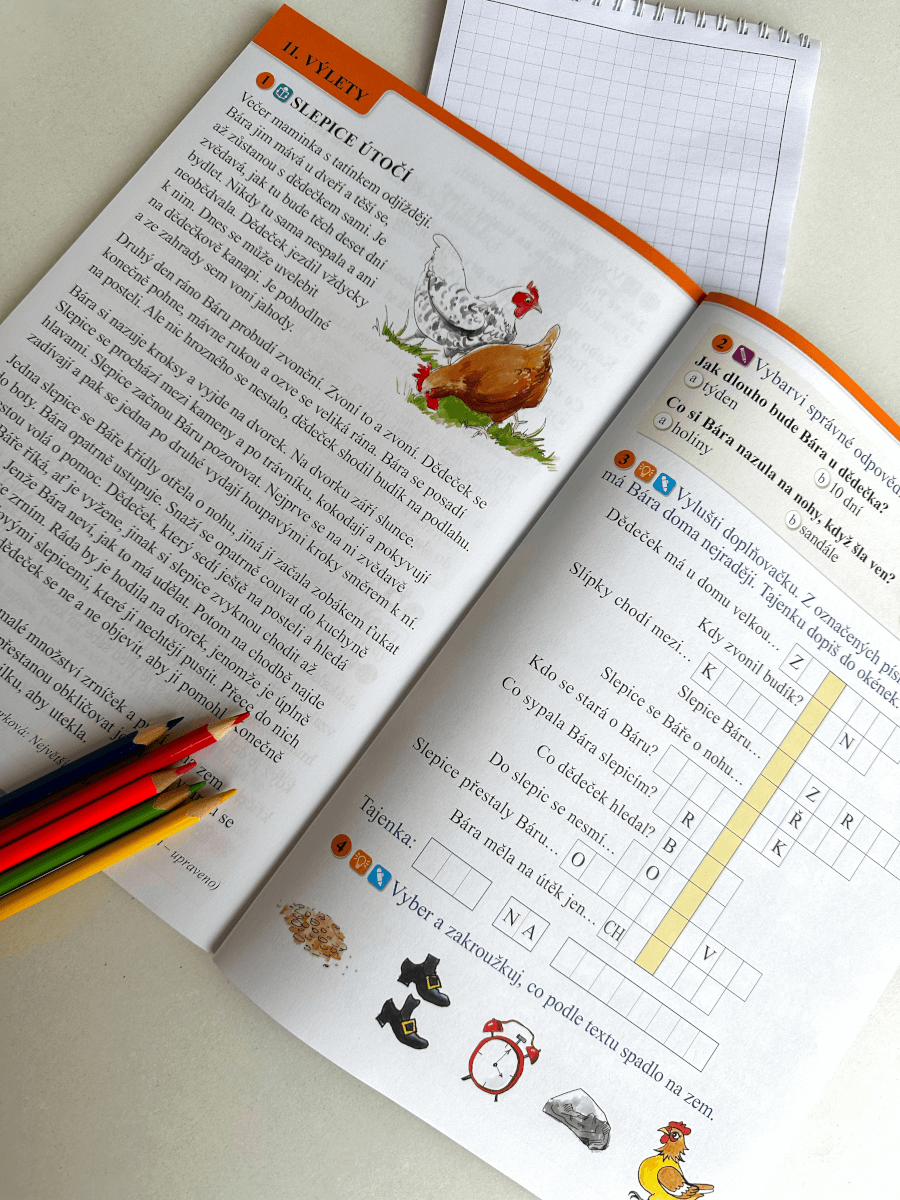 11. VÝLETY
1 SLEPICE ÚTOČÍ
Večer maminka s tatínkem odjíždějí.
Bára jim mává u dveří a těší se,
až zůstanou s dědečkem sami. Je
zvědavá, jak tu bude těch deset dní
bydlet. Nikdy tu sama nespala a ani
neobědvala. Dědeček jezdil vždycky
k nim. Dnes se může uvelebit
na dědečkově kanapi. Je pohodlné
a ze zahrady sem voní jahody.
Druhý den ráno Báru probudí zvonění. Zvoní to a zvoní. Dědeček se
konečně pohne, mávne rukou a ozve se veliká rána. Bára se posadí
na posteli. Ale nic hrozného se nestalo, dědeček shodil budík na podlahu.
Bára si nazuje kroksy a vyjde na dvorek. Na dvorku září slunce.
Slepice se prochází mezi kameny a po trávníku, kokodají a pokyvují
hlavami. Slepice začnou Báru pozorovat. Nejprve se na ni zvědavě
zadívají a pak se jedna po druhé vydají houpavými kroky směrem k ní.
Jedna slepice se Báře křídly otřela o nohu, jiná jí začala zobákem ťukat
do boty. Bára opatrně ustupuje. Snaží se opatrně couvat do kuchyně
volá o pomoc. Dědeček, který sedí ještě na posteli a hledá
Báře říká, ať je vyžene, jinak si slepice zvyknou chodit až
Jenže Bára neví, jak to má udělat. Potom na chodbě najde
zrním. Ráda by je hodila na dvorek, jenomže je úplně
slepicemi, které ji nechtějí pustit. Přece do nich
dědeček se ne a ne objevit, aby jí pomohl. Konečně
malé množství zrníček a
přestanou obkličovat
aby utekla.
na zem
se
– upraveno)
2 Vybarvi správné
Jak dlouho bude Bára u dědečka?
a týden
b 10 dní
Co si Bára nazula na nohy, když šla ven?
a holiny
b sandále
3 Vylušti doplňovačku. Z označených
má Bára doma nejraději. Tajenku dopiš do okének.
Dědeček má u domu velkou… Z
Kdy zvonil budík? N
Slípky chodí mezi… K
Slepice Báru… Z
Slepice se Báře o nohu… Ř R
Kdo se stará o Báru? K
Co sypala Bára slepicím? R
Co dědeček hledal? B
Do slepic se nesmí… O
Slepice přestaly Báru… O V
Bára měla na útěk jen… CH
Tajenka: N A
4 Vyber a zakroužkuj, co podle textu spadlo na zem.